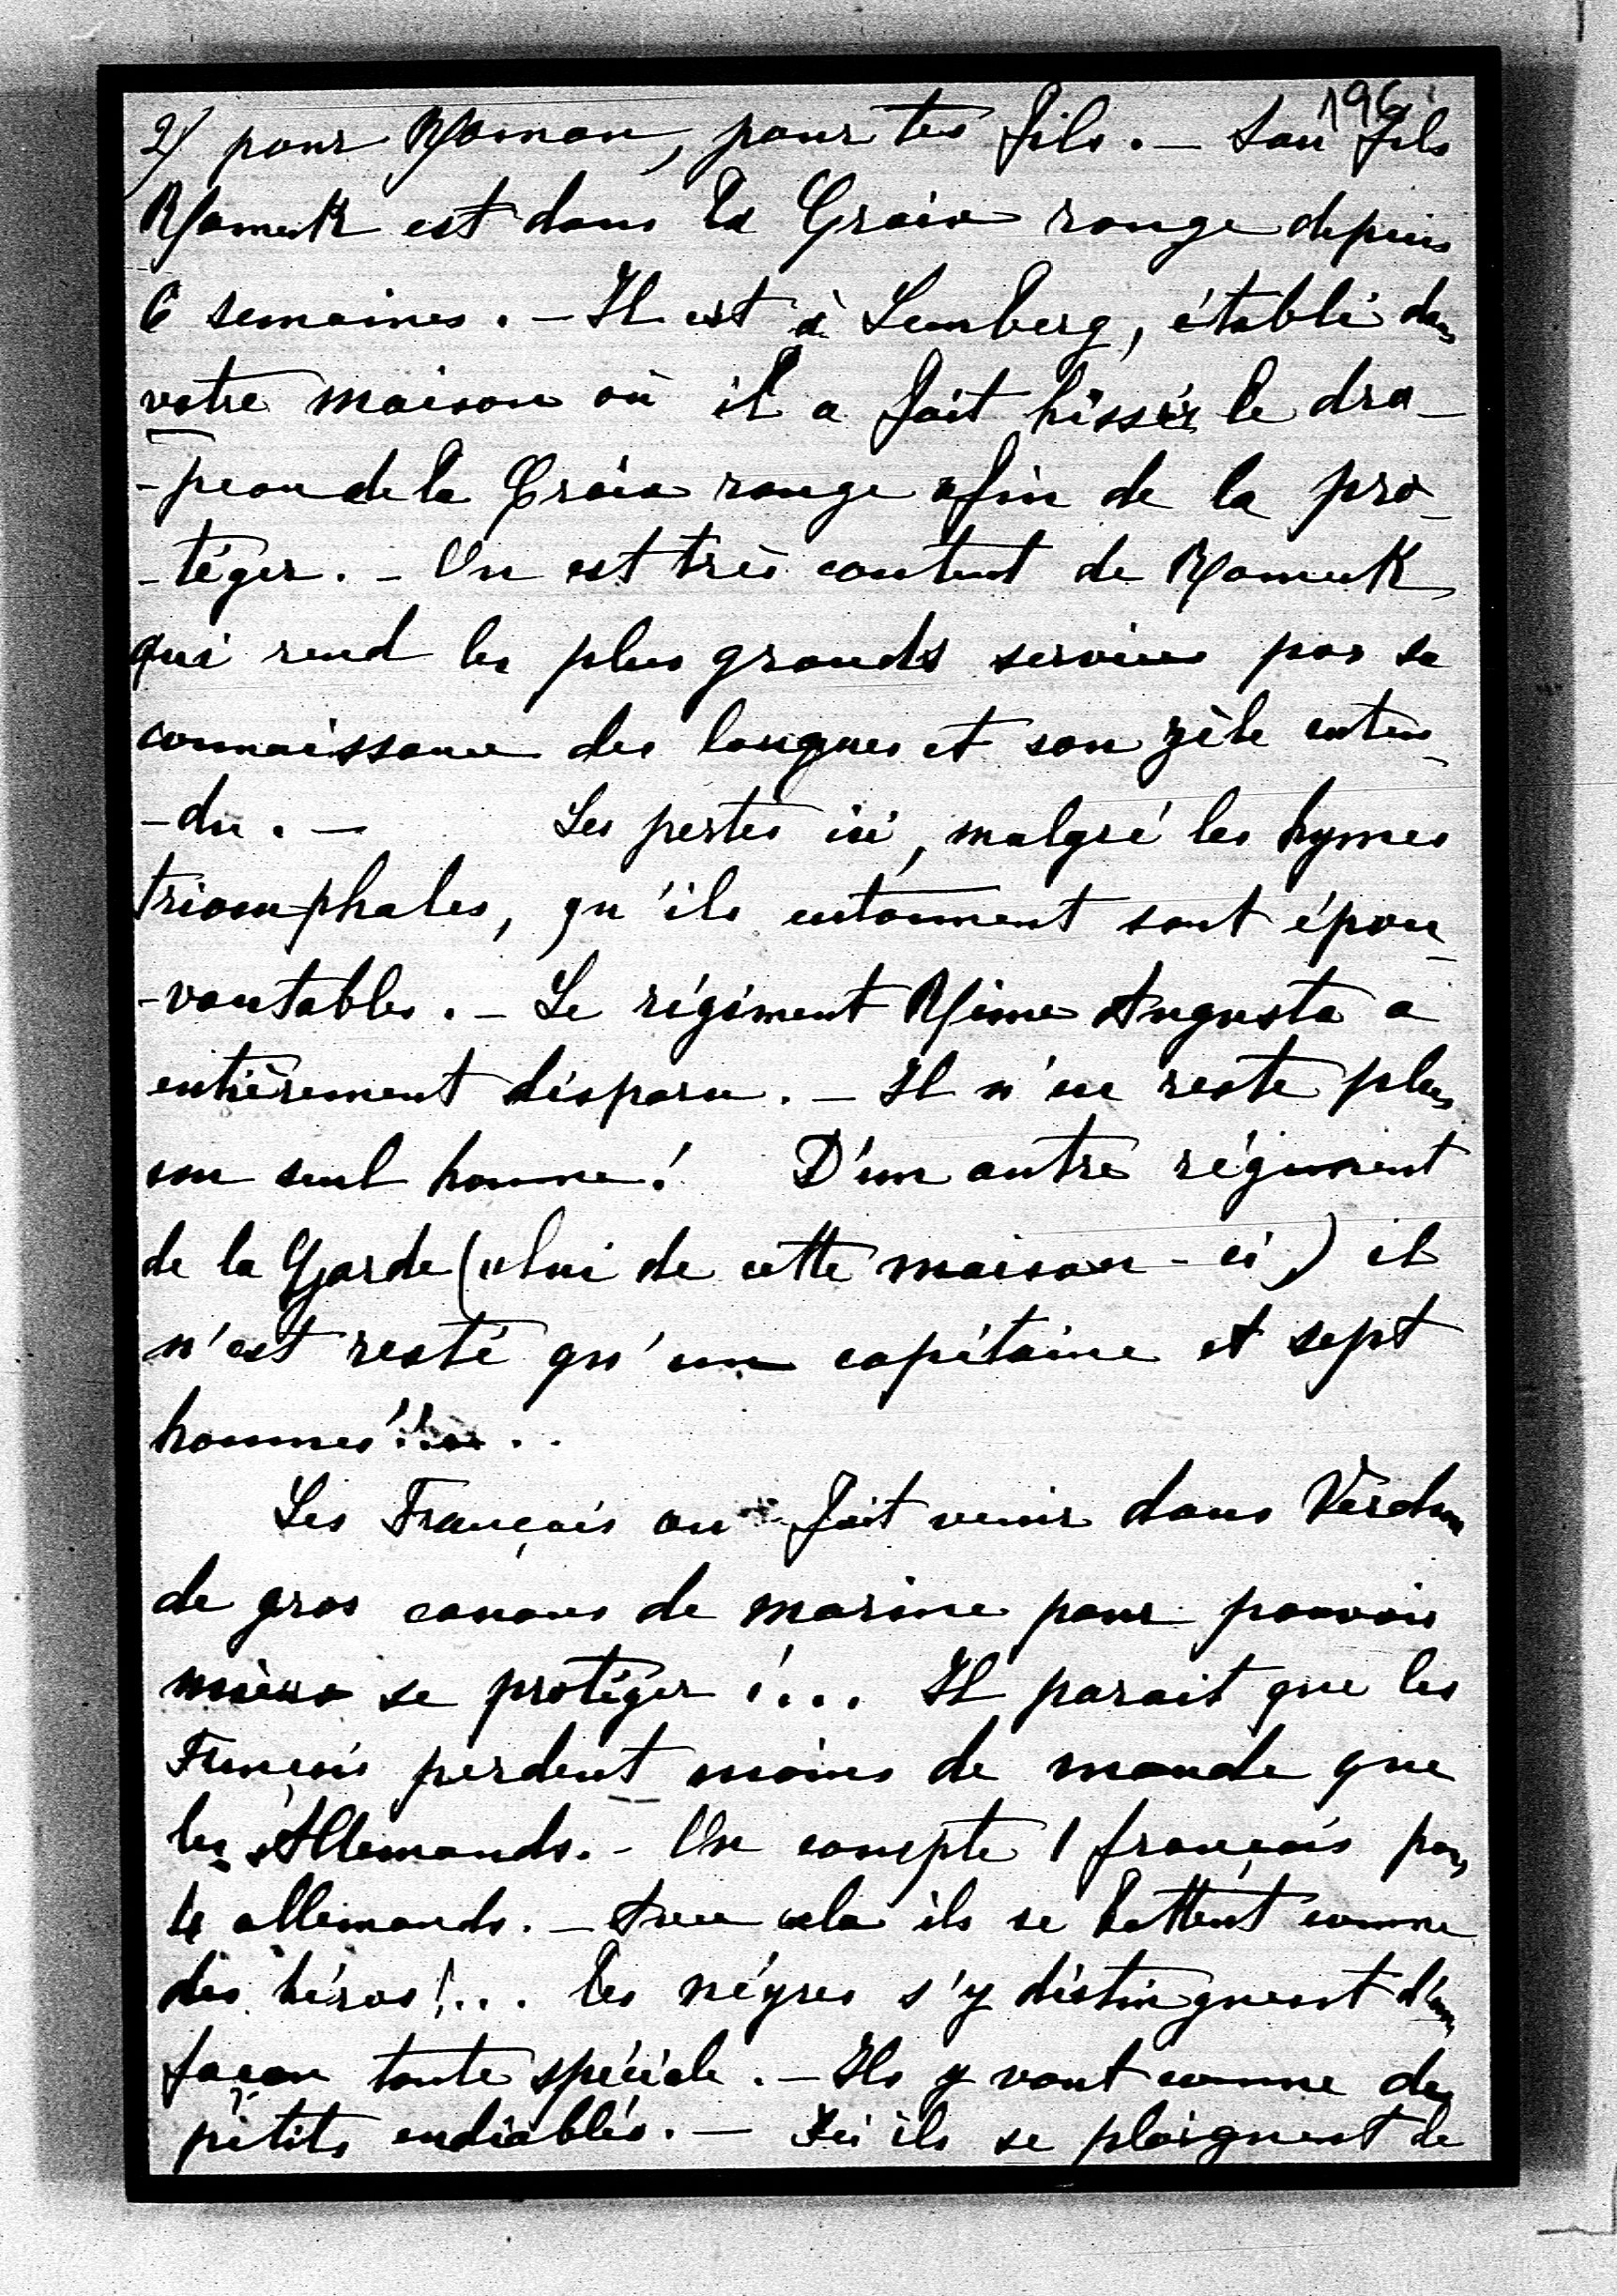 196
2) pour Roman, pour tes fils. – Son fils
Romuk est dans la Croix rouge depuis
6 semaines. – Il est à Lemberg, établi dans
votre maison où il a fait hisser le dra-
-peau de la Croix rouge afin de la pro-
-téger. – On est très content de Romuk
qui rend les plus grands services par sa
connaissance des langues et son zèle enten-
-du. – Les pertes ici, malgré les hymes
triomphales, qu'ils entonnent sont épou-
-vantables. – Le régiment Reine Augusta a
entièrement disparu. – Il n'en reste plus
un seul homme! D'un autre régiment
de la Garde (celui de cette maison-ci) il
n'est resté qu'un capitaine et sept
hommes!...
Les Français on fait venir dans Verdun
de gros canons de marine pour pouvoir
mieux se protéger!... Il parait que les
Français perdent moins de monde que
les Allemands. – On compte 1 français pour
4 allemands. – Avec cela ils se battent comme
des héros!... Les nègres s'y distinguent d'une
façon toute spéciale. – Ils y vont comme des
petits endiablés. – Ici ils se plaignent de